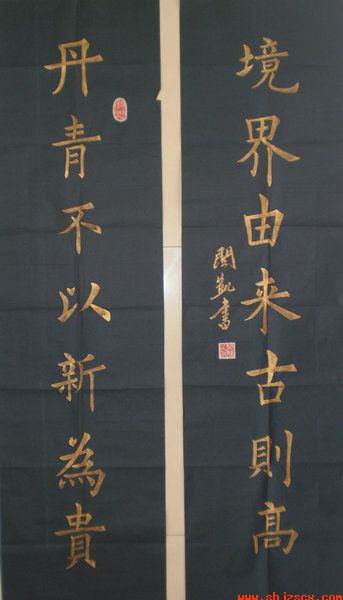 丹青不以新為貴
境界由来古則高
凱書
www.shjzscx.com